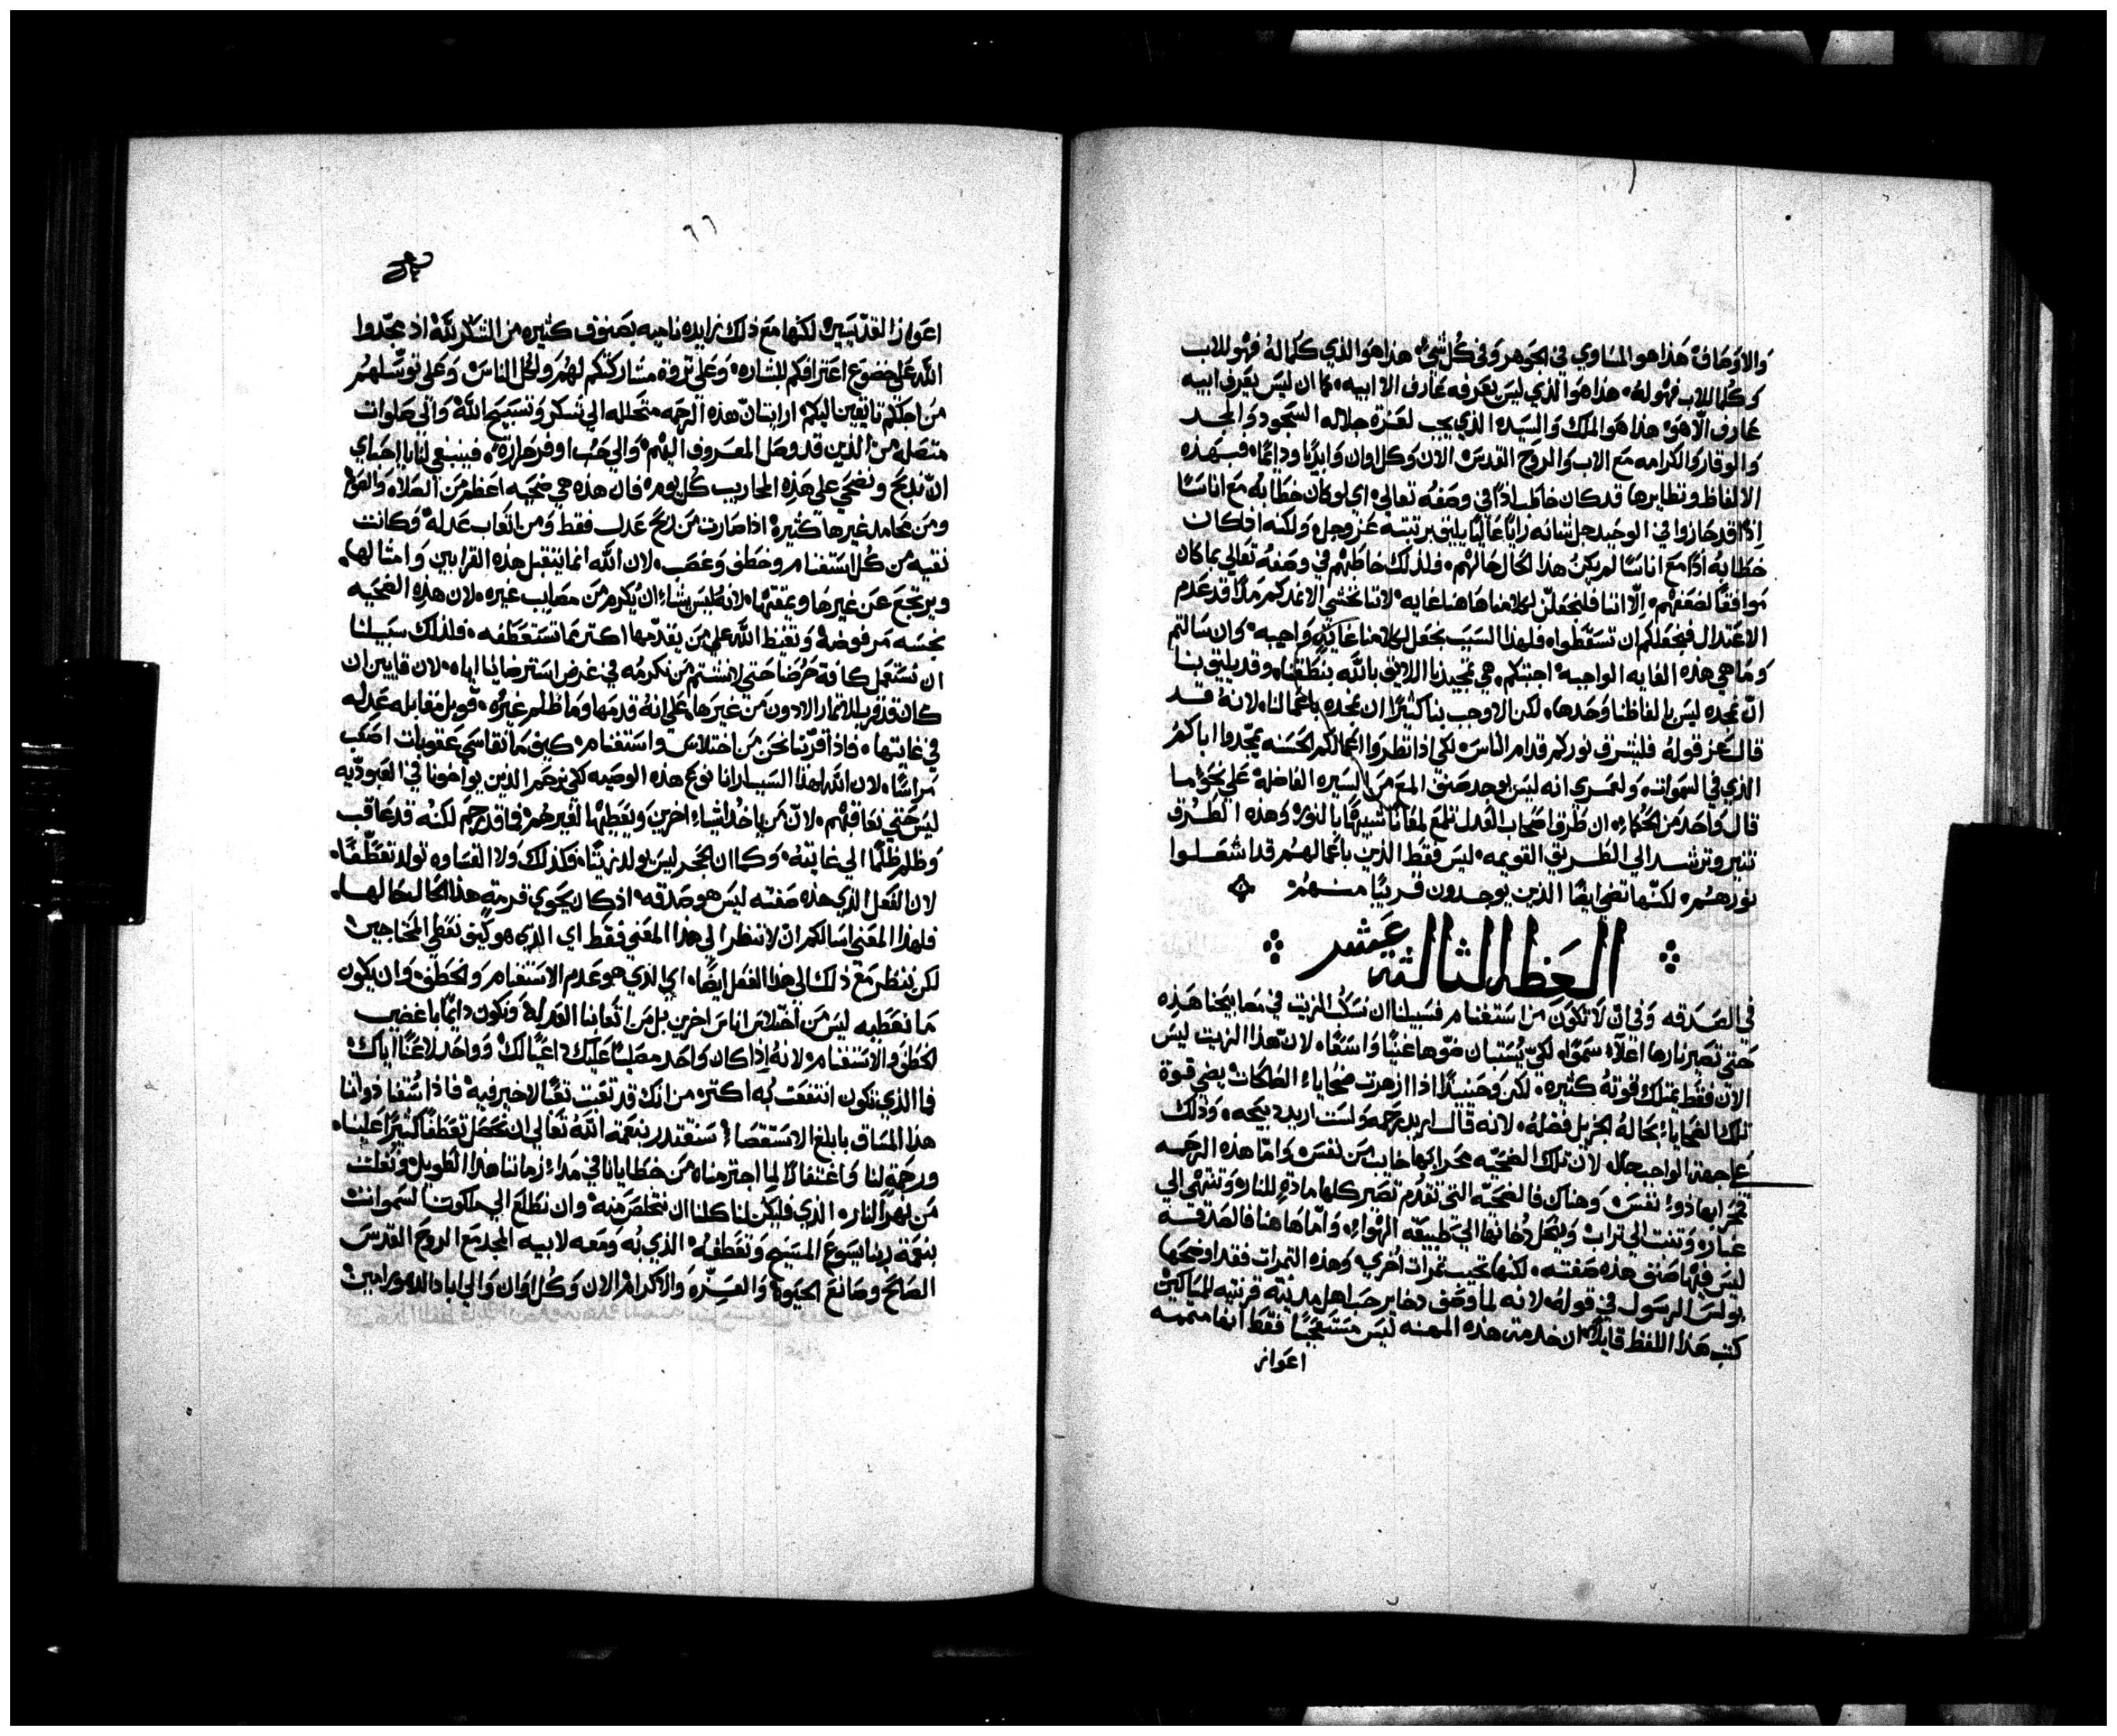 والاوصاف هذا هو المساوي في الجوهر وفي كل شي هذا هو الذي كلما له فهو للاب
وكلما للاب فهو له هذا هو الذي ليس يعرفه عارف الا ابيه كما ان ليس يعرف ابيه
عارف الا هو هذا هو الملك والسيد الذي يجب لعزة جلاله السجود والمجد
والوقار والكرامه مع الاب والروح القدس الان وكل اوان وابديا ودايما فبهذه
الالفاظ ونظايرها قد كان خاطب اذا في وصفه تعالي اي لو كان خطابه مع اناسا
اذا قد حازوا في الوحيد جل ثنائه رايا عاليا يليق برتبته عز وجل ولكنه اذ كان
خطابه اذا مع اناسا لم يكن هذا الحال حالهم فلذلك خاطبهم في وصفه تعالي بما كان
موافقا لضعفهم الا اننا فلنجعلن لكلامنا هاهنا غايه لاننا نخشي الا نفدكم ملالا قد عدم
الاعتدال فيجعلكم ان تسقطوا فلهذا السبب نجعل لكلامنا غاية واجبه وان سالتم
وما هي هذه الغايه الواجبه اجبتكم هي تمجيدنا اللايق بالله بنطقنا وقد يليق بنا
ان نمجده ليس بالفاظنا وحدها لكن الاوجب بنا كثيرا ان نمجده باعمالنا لانه قد
قال عز قوله فليشرف نوركم قدام الناس لكي اذا نظروا اعمالكم الحسنه يمجدوا اباكم
الذي في السموات ولعمري انه ليس يوجد صنف المع من السيره الفاضله علي نحو ما
قال واحد من الحكماء ان طرق اصحاب العدل تلمع لمعانا شبيها بالنور وهذه الطرق
تنير وترشد الي الطريق القويمه ليس فقط الذين باعمالهم قد اشعلوا
نورهم لكنها تضي ايضا الذين يوجدون قريبا منهم
العظه الثالثة عشر
في الصدقه وفي ان لا تكون من استغنام فسبيلنا ان نسكب الزيت في مصابيحنا هذه
حتي تصير نارها اعلاء سموا لكي يستبان ضوها غنيا واسعا لان هذا الزيت ليس
الان فقط يمتلك قوته كثيره لكن وحينيذا اذا ازهرت ضحاياء الهلكات يضي قوة
تلك الضحاياء بحاله الجزيل فضله لانه قال اريد رحمه ولست اريد ذبيحه وذلك
علي جهة الواجب جدا لان تلك الضحيه محرابها خايب من نفس واما هذه الرحمه
محرابها ذوا نفس وهناك فالضحيه التي تقدم تصير كلها مادة للنار وتنتهي الي
غبار وتفنت الي تراب وينحل دخانها الي طبيعة الهواء واما هاهنا فالصدقه
ليس فيها صنف هذه صفته لكنها تجيب ثمرات اخري وهذه الثمرات فقد اوضحها
بولس الرسول في قوله لانه لما وصف دخاير حب اهل مدينة قرنتيه للمساكين
كتب هذا اللفظ قايلا ان خدمة هذه المهنه ليس مستنجبا فقط انها متممه
اعواز
٦٦
اعواز القديسين لكنها مع ذلك زايده ناميه بصنوف كثيره من الشكر لله اذ مجدوا
الله علي خضوع اعترافكم للبشاره وعلي ثروة مشاركتكم لهم ولكل الناس وعلي توسلهم
من اجلكم تايقين اليكم ارايت ان هذه الرحمه متحلله الي شكر وتسبيح الله والي صلوات
متصله من الذين قد وصل المعروف اليهم والي حب اوفر حراره فينبغي لنا يا احباي
ان نذبح ونضحي علي هذه المحاريب كل يوم فان هذه هي ضحيه اعظم من الصلاه والصوم
ومن محامد غيرها كثيره اذا صارت من ربح عدل فقط ومن اتعاب عدله وكانت
نقيه من كل استغنام وخطف وغصب لان الله انما يتقبل هذه القرابين وامثالها
ويرتجع عن غيرها ويمقتها لانه ليس يشاء ان يكرم من مصايب غيره لان هذه الضحيه
نجسه مرفوضه وتغيظ الله علي من يقدمها اكثر مما تستعطفه فلذلك سبيلنا
ان نستعمل كافة حرصنا حتي لا نشتم من نكرمه في غرض استرضايانا اياه لان قايين ان
كان قد قرب الاثمار الادون من غيرها علي انه قدمها وما ظلم غيره قوبل مقابله عدله
في غايتها فاذا قربنا نحن من اختلاس واستغنام كيف ما نقاسي عقوبات اصعب
مراسا لان الله لهذا السبب ارانا نوع هذه الوصيه لكي نرحم الذين يواخونا في العبوديه
ليس حتي نعاقبهم لان من ياخذ اشياء اخرين ويعطيها لغيرهم فما قد رحم لكنه قد عاقب
وظلم ظلما الي غايته وكما ان الحجر ليس يولد زيتا فكذلك ولا القساوه تولد تعطفا
لان الفعل الذي هذه صفته ليس هو صدقه اذ كان يحوي قرمة هذا الحال حالها
فلهذا المعني اسالكم ان لا ننظر الي هذا المعني فقط اي الذي هو كيف نعطي المحتاجين
لكن ننظر مع ذلك الي هذا الفعل ايضا اي الذي هو عدم الاستغنام والخطف وان يكون
ما نعطيه ليس من اختلاس اناس اخرين بل من اتعابنا العدله ونكون دايما باغضين
الخطف والاستغنام لانه اذا كان واحد مصليا عليك داعيا لك وواحد لاعنا اياك
فما الذي تكون انتفعت به اكثر من انك قد تعبت تعبا لا خير فيه فاذا سقنا ذواتنا
هذا المساق بابلغ الاستقصا سنقتدر بنعمة الله تعالي ان نحصل تعطفا كثيرا علينا
ورحمة لنا واغتفارا لما اجترمناه من خطايانا في مداء زماننا هذا الطويل ونفلت
من نهر النار الذي فليكن لنا كلنا ان نتخلص منه وان نطلع الي ملكوت السموات
بنعمة ربنا يسوع المسيح وتعطفه الذي به ومعه لابيه المجد مع الروح القدس
الصالح وصانع الحيوة والعزه والاكرام الان وكل اوان والي اباد الدهور امين